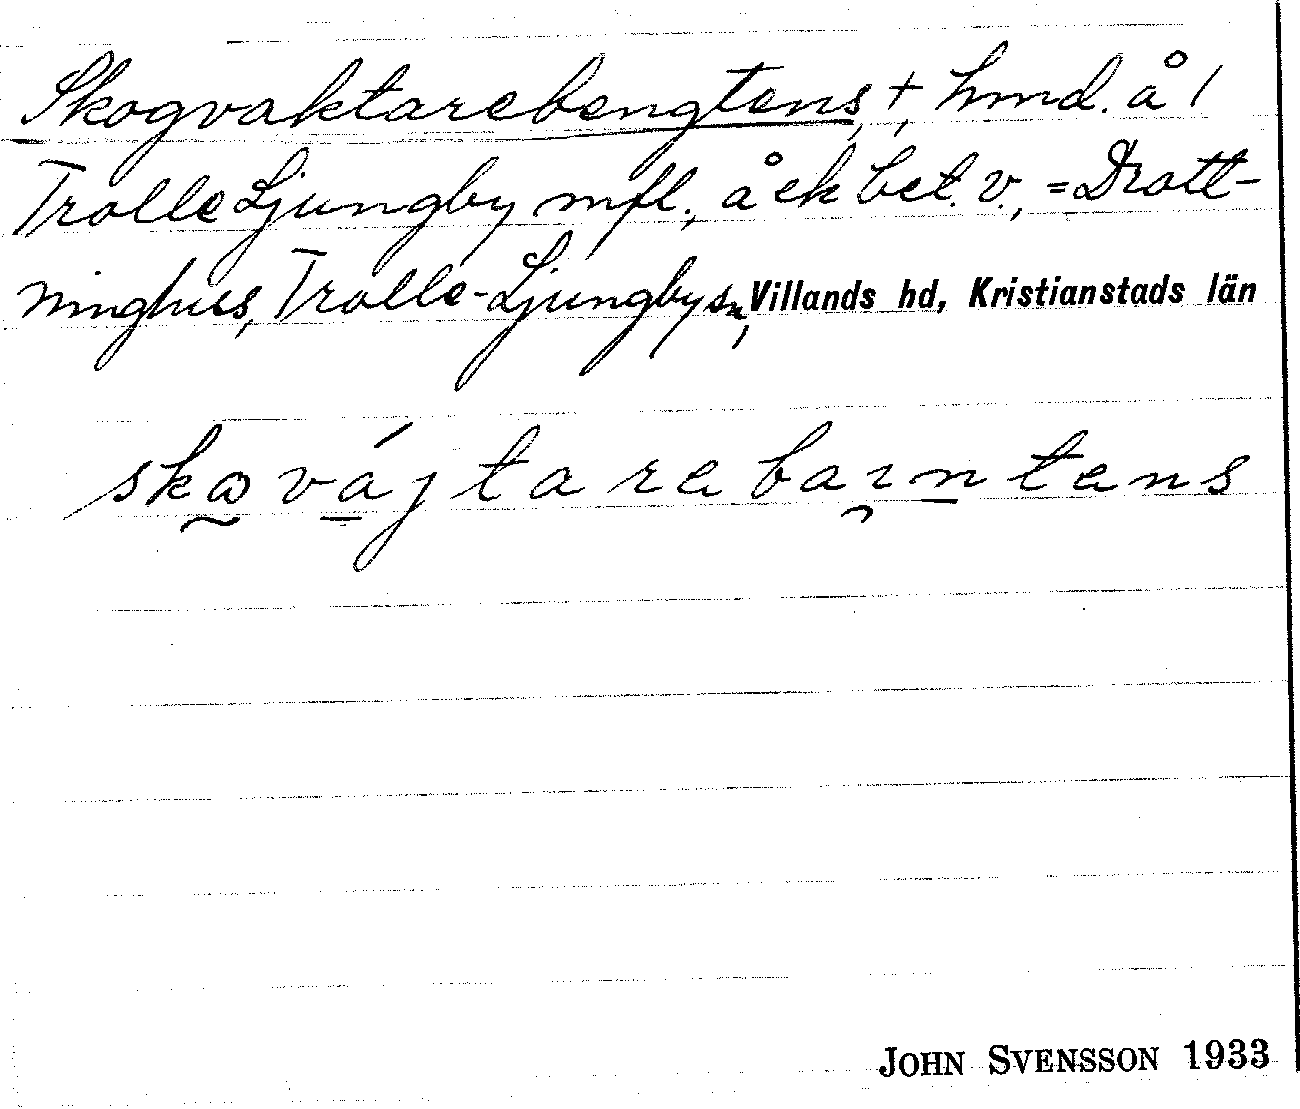 Skogvaktarebengtens, +, hmd. å 1
Trolle Ljungby mfl., åek bet. v., = Drott-
ninghus, Trolle-Ljungby sn, Villands hd, Kristianstads län
skøvájtarebaıntens
JOHN SVENSSON 1933